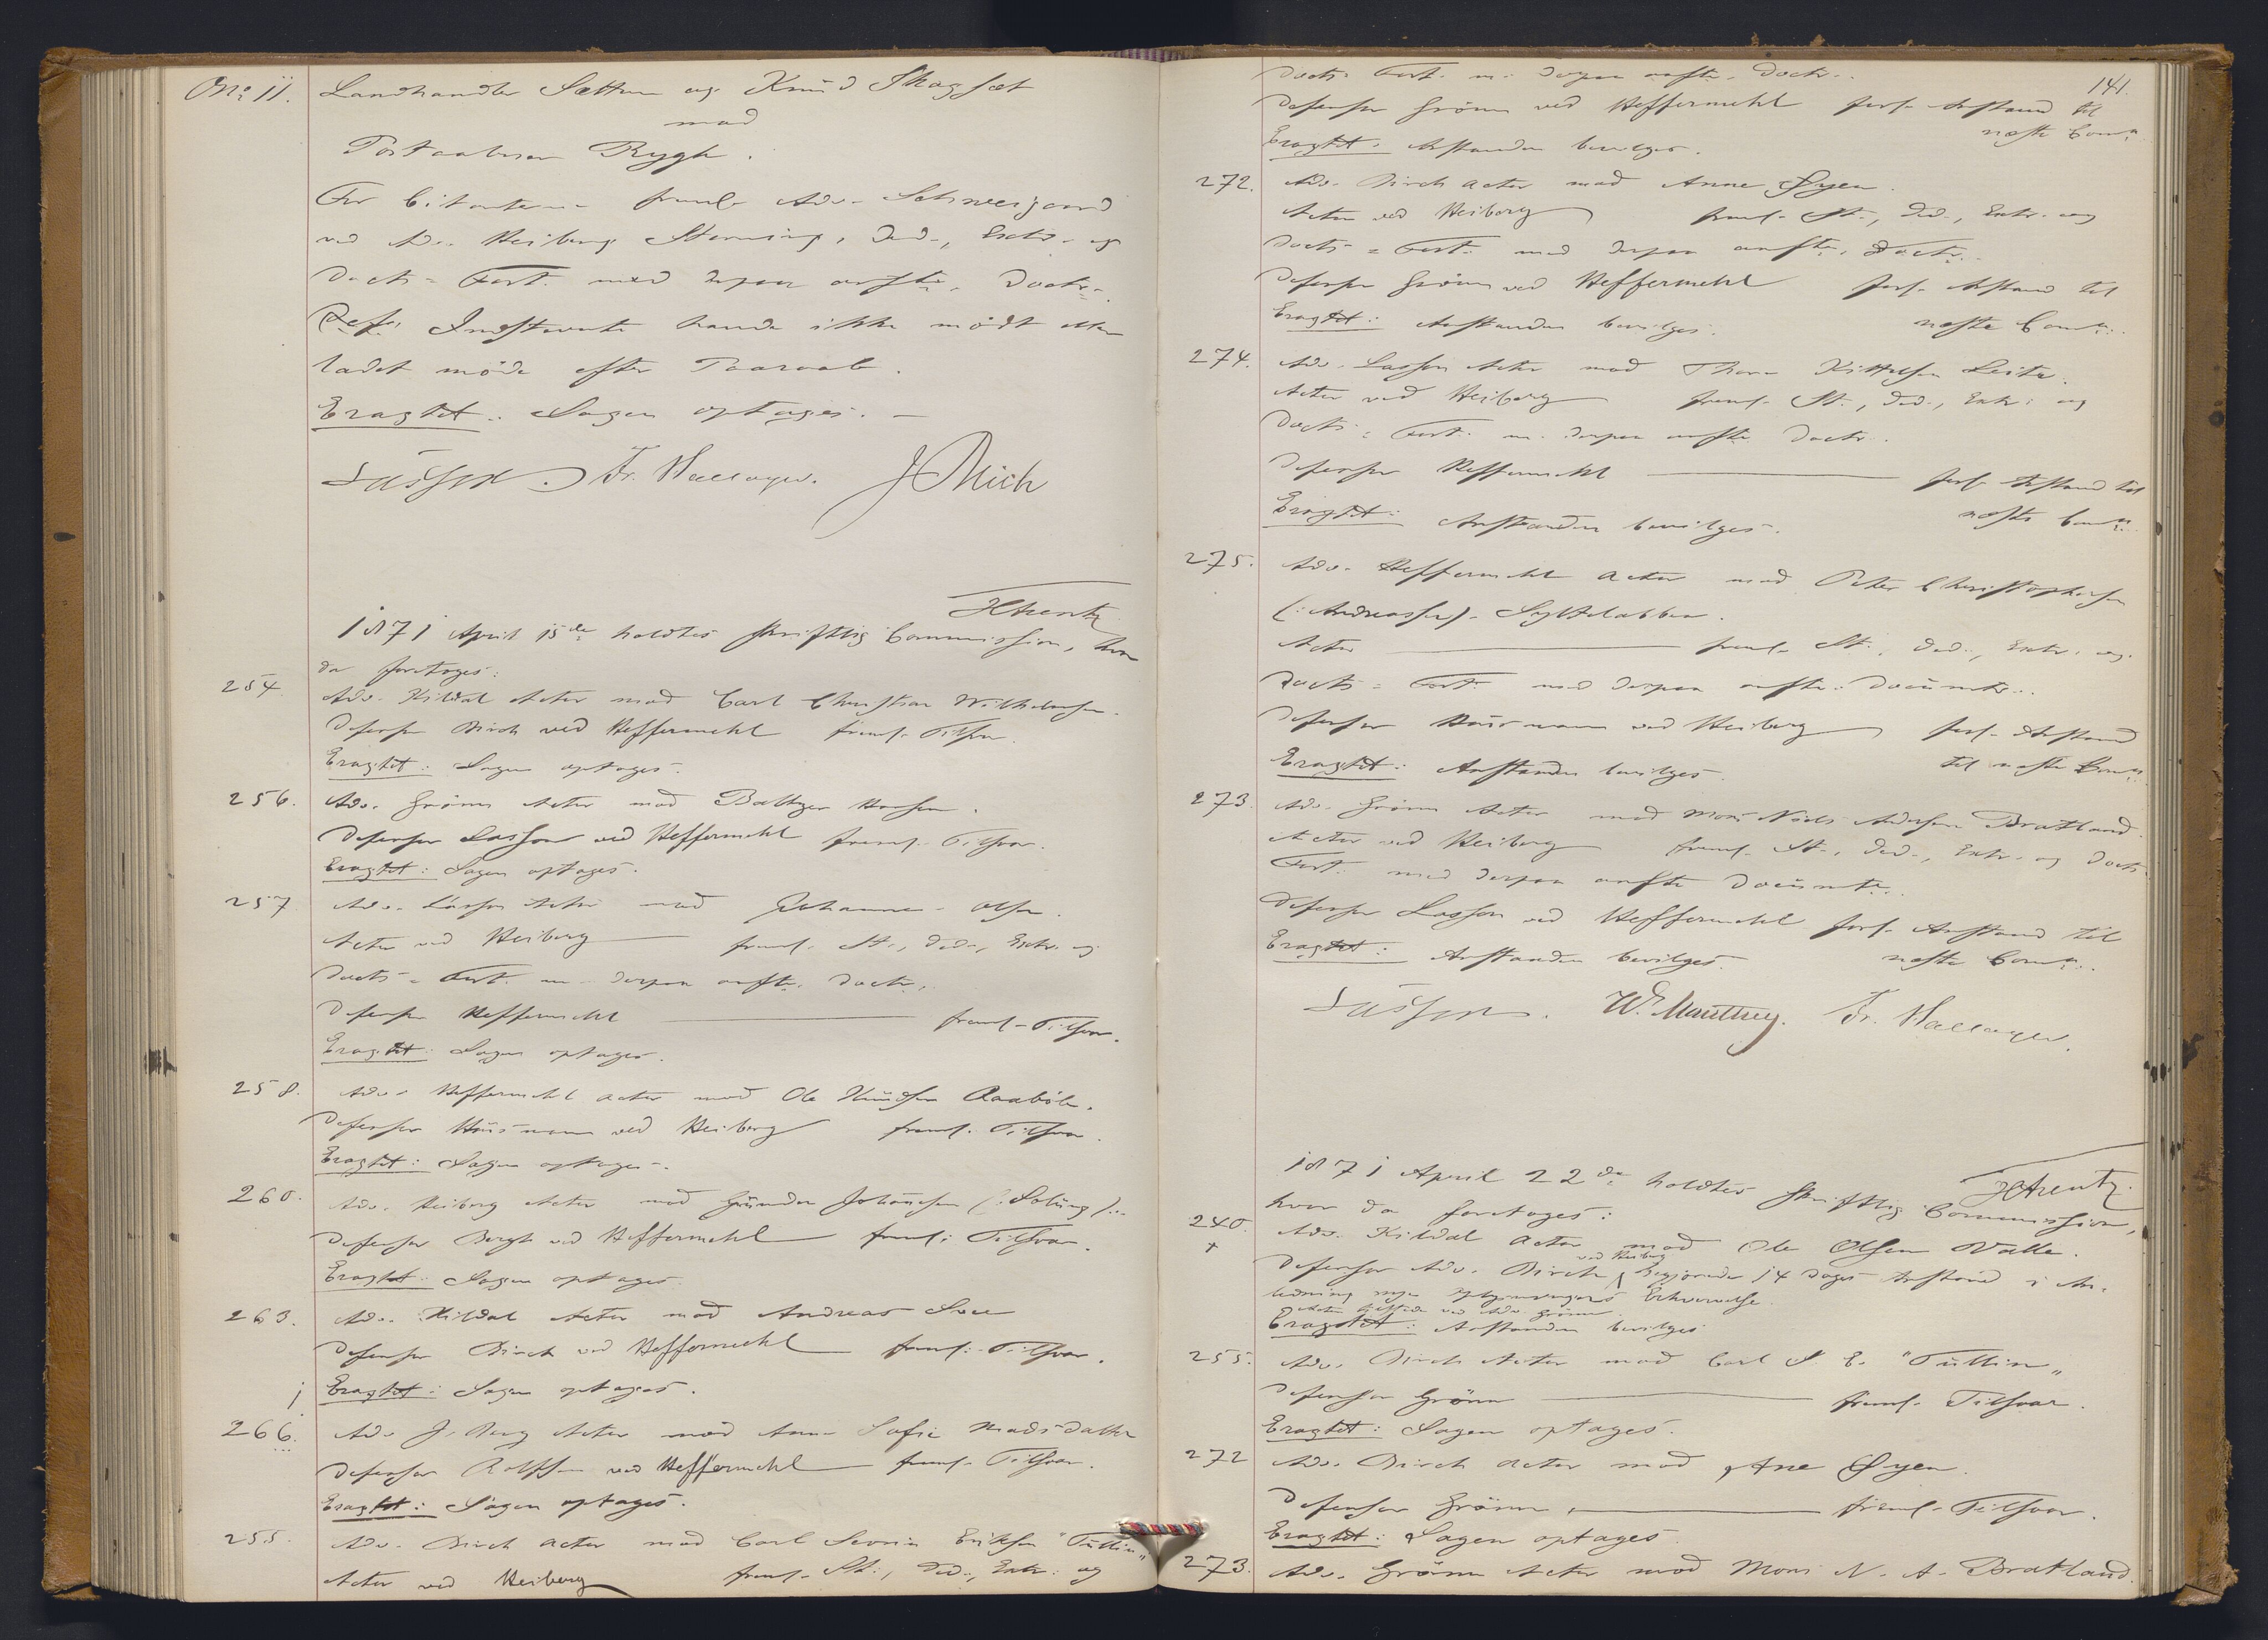 No: 11. Landhandler Sættem og Knud Skagset
mod
Postaabner Rygh.
For Citanterne freml. Adv. Schweigaard
ved Adv. Heiberg Stevning, Ded., Extr. og
Docts = Fort. med derpaa anførte Doctr.
Indstevnte havde ikke mödt eller
ladet möde efter Paaraab.
Eragtet: Sagen optages. –
Lasson. Fr. Hallager. J Mich
HArentz
1871 April 15de holdtes skriftlig Commission, hvor
da foretoges:
254. Adv. Kildal Actor mod Carl Christian Wilhelmsen.
Defensor Birch ved Heffermehl freml. Tilsvar.
Eragtet: Sagen optages.
256. Adv. Grönn Actor mod Baltzer Hansen.
Defensor Lasson ved Heffermehl freml. Tilsvar.
Eragtet: Sagen optages.
257 Adv. Lasson Actor mod Johanne Olsen.
Actor ved Heiberg freml. St., Ded., Extr. og
Docts = Fort. m. derpaa anførte Doctr.
Defensor Heffermehl freml. Tilsvar.
Eragtet: Sagen optages.
258. Adv. Heffermehl Actor mod Ole Knudsen Raaböle.
Defensor Husmann ved Heiberg freml. Tilsvar.
Eragtet: Sagen optages.
260. Adv. Heiberg Actor mod Gunder Johansen (: Solung).
Defensor Bergh ved Heffermehl freml. Tilsvar.
Eragtet: Sagen optages.
263. Adv. Kildal Actor mod Andreas
Defensor Birch ved Heffermehl freml. Tilsvar.
Eragtet: Sagen optages.
266. Adv. J. Berg Actor mod Anne Sofie Madsdatter
Defensor Rolfsen ved Heffermehl freml. Tilsvar.
Eragtet: Sagen optages.
255. Adv. Birch Actor mod Carl Severin Eriksen "Tullin"
Actor ved Heiberg freml. St., Ded., Extr. og
141.
Docts Fort. m. derpaa anførte Doctr.
Defensor Grönn ved Heffermehl forl. Anstand til
næste Comn.
Eragtet: Anstanden bevilges.
272. Adv. Birch Actor mod Anne Øyen.
Actor ved Heiberg freml. St., Ded., Extr. og
Docts = Fort. med derpaa anførte Doctr.
Defensor Grönn ved Heffermehl forl. Anstand til
næste Comn.
Eragtet: Anstanden bevilges.
274. Adv. Lasson Actor mod Thor Kittelsen Leite.
Actor ved Heiberg freml. St., Ded., Extr. og
Docts = Fort. m. derpaa anførte Doctr.
Defensor Heffermehl forl. Anstand til
næste Comn.
Eragtet: Anstanden bevilges.
275. Adv. Heffermehl Actor mod Peter Christophersen
(: Andreassen)
Actor freml. St., Ded., Extr. og
Docts = Fort. med derpaa anførte Documtr.
Defensor Husmann ved Heiberg forl. Anstand
til næste Comn.
Eragtet: Anstanden bevilges.
273. Adv. Grönn Actor mod Mons Niels Andersen Bratland.
Actor ved Heiberg freml. St., Ded., Extr. og Docts
Fort. med derpaa anførte Documtr.
Defensor Lasson ved Heffermehl forl. Anstand til
næste Comn.
Eragtet: Anstanden bevilges.
Lasson. W. Manthey. Fr. Hallager.
HArentz.
1871 April 22de holdtes skriftlig Commission,
hvor da foretoges:
240. Adv. Kildal Actor mod Ole Olsen Valle.
+ Defensor Adv. Birch ved Heiberg Begjærede 14 Dages Anstand i An-
ledning nye Oplysningers Erhvervelse.
Actor tilstede ved Adv. Grönn.
Eragtet: Anstanden bevilges
255. Adv. Birch Actor mod Carl S. E. "Tullin"
Defensor Grönn freml. Tilsvar.
Eragtet: Sagen optages.
272 Adv. Birch Actor mod Ane Øyen.
Defensor Grönn freml. Tilsvar.
Eragtet: Sagen optages.
273. Adv. Grönn Actor mod Mons N. A. Bratland.